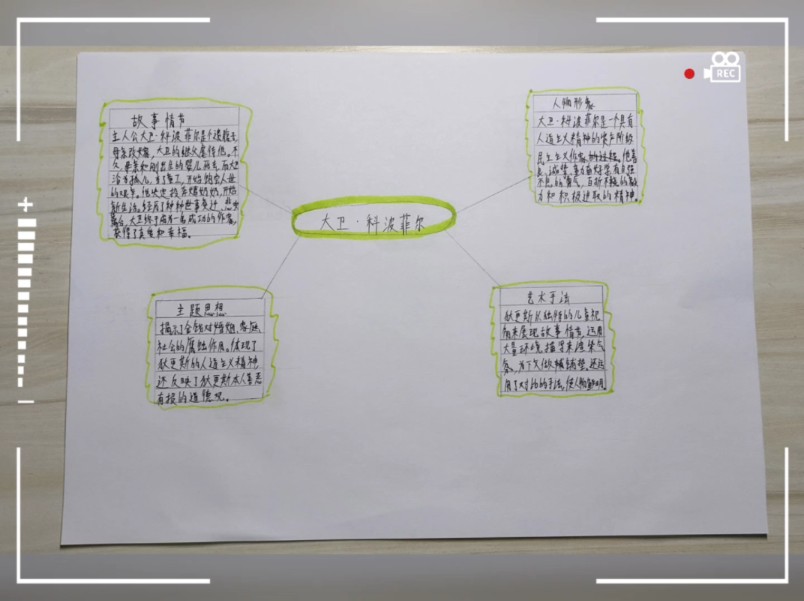 REC
故事情节
主人公大卫·科波菲尔是个遗腹子
母亲改嫁,大卫的继父虐待他。不
久,母亲和刚出生的婴儿死去,而大卫
开始
经历了种种世事变迁
大卫终于成为一名成功的作家,
获得了真爱和幸福。
人物形象
大卫·科波菲尔是一个具有
人道主义精神的资产阶级
民主主义作家
良,诚挚
不息的勇气,百折不挠的毅
力和积极进取的精神。
大卫·科波菲尔
主题思想
揭示了金钱对婚姻,家庭
社会的腐蚀作用。体现了
狄更斯的人道主义精神,
还反映了狄更斯本人善恶
有报的道德观。
艺术手法
狄更斯从独特的儿童视
角来展现故事情节,还用
大量环境描写来渲染气
氛,为下文做铺垫,还运
用了对比的手法,使人物鲜明。